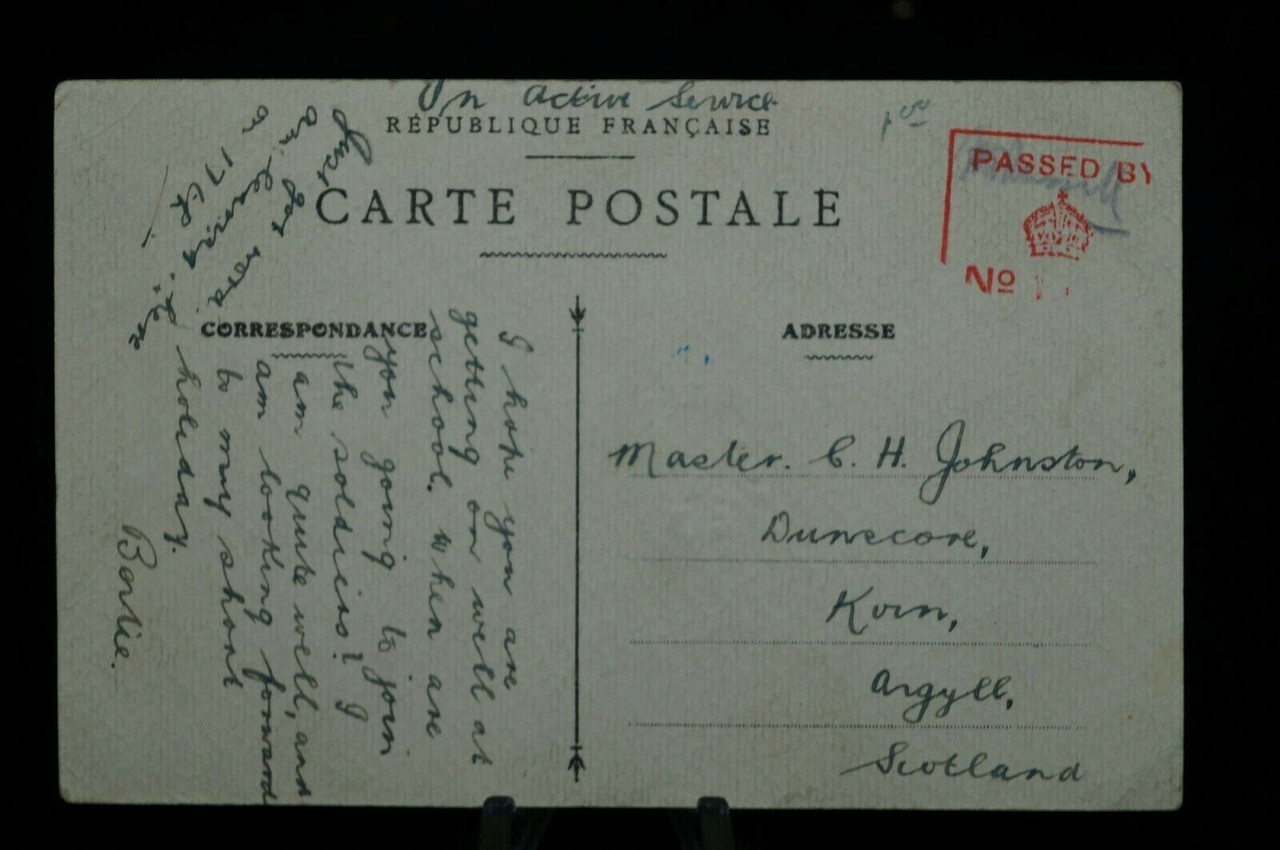 On Active Service
RÉPUBLIQUE FRANÇAISE
CARTE POSTALE
PASSED BY
No
CORRESPONDANCE
ADRESSE
I hope you are
getting on well at
school. When are
you going to join
the soldiers? I
am quite well, and
am looking forward
to my short
holiday.
Bertie.
Just
on 17th
Master. C. H. Johnston,
Dunecore,
Kirn,
Argyll,
Scotland